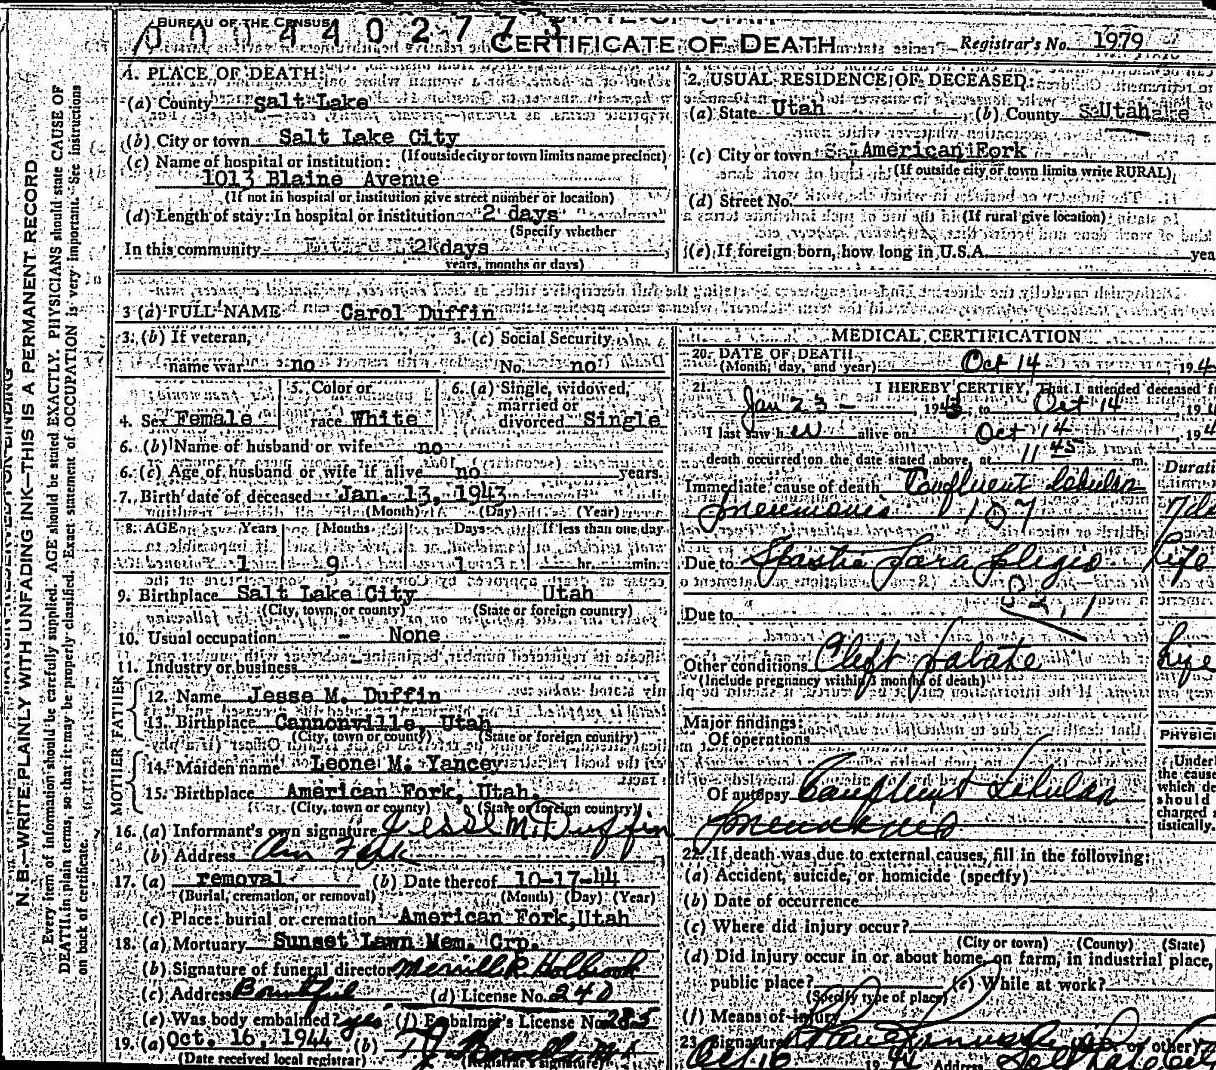 BUREAU OF THE CENSUS
STATE OF UTAH
0004402773
CERTIFICATE OF DEATH
Registrar's No. 1979
N. B.—WRITE PLAINLY WITH UNFADING INK—THIS IS A PERMANENT RECORD
Every item of information should be carefully supplied. AGE should be stated EXACTLY. PHYSICIANS should state CAUSE OF
DEATH in plain terms, so that it may be properly classified. Exact statement of OCCUPATION is very important. See instructions
on back of certificate.
1. PLACE OF DEATH:
(a) County Salt Lake
(b) City or town Salt Lake City
(If outside city or town limits name precinct)
(c) Name of hospital or institution:
1013 Blaine Avenue
(If not in hospital or institution give street number or location)
(d) Length of stay: In hospital or institution 2 days
(Specify whether
In this community 2 days
years, months or days)
2. USUAL RESIDENCE OF DECEASED:
(a) State Utah (b) County Utah
(c) City or town American Fork
(If outside city or town limits write RURAL)
(d) Street No.
(If rural give location)
(e) If foreign born, how long in U.S.A. yea
3 (a) FULL NAME Carol Duffin
3. (b) If veteran, name war no
3. (c) Social Security No. no
4. Sex Female
5. Color or race White
6. (a) Single, widowed, married or divorced Single
6. (b) Name of husband or wife no
6. (c) Age of husband or wife if alive no years.
7. Birth date of deceased Jan. 13, 1943
(Month) (Day) (Year)
8. AGE Years Months Days If less than one day
1 9 1 hr. min.
9. Birthplace Salt Lake City Utah
(City, town, or county) (State or foreign country)
10. Usual occupation - None
11. Industry or business -
FATHER
12. Name Jesse M. Duffin
13. Birthplace Cannonville, Utah
(City, town or county) (State or foreign country)
MOTHER
14. Maiden name Leone M. Yancey
15. Birthplace American Fork, Utah.
(City, town or county) (State or foreign country)
16. (a) Informant's own signature Jesse M. Duffin
(b) Address Am Fork
17. (a) removal (b) Date thereof 10-17-44
(Burial, cremation, or removal) (Month) (Day) (Year)
(c) Place: burial or cremation American Fork, Utah
18. (a) Mortuary Sunset Lawn Mem. Crp.
(b) Signature of funeral director Merrill R. Holbrook
(c) Address Bountiful (d) License No. 240
(e) Was body embalmed? yes (f) Embalmer's License No. 285
19. (a) Oct. 16, 1944 (b)
(Date received local registrar) (Registrar's signature)
MEDICAL CERTIFICATION
20. DATE OF DEATH
(Month, day, and year) Oct 14, 194
21. I HEREBY CERTIFY, That I attended deceased f
Jan 23 -, 1943, to Oct 14, 19
I last saw her alive on Oct 14, 194
death occurred on the date stated above, at 11 45 m.
Durati
Immediate cause of death Confluent Lobular
Pneumonia 107
Due to Spastic Paraplegia Life
Due to
Other conditions Cleft Palate Life
(Include pregnancy within 3 months of death)
Major findings:
Of operations
PHYSICI
Of autopsy Confluent Lobular
Pneumonia
Underl
the cause
which de
should
charged s
tistically.
22. If death was due to external causes, fill in the following:
(a) Accident, suicide, or homicide (specify)
(b) Date of occurrence
(c) Where did injury occur?
(City or town) (County) (State)
(d) Did injury occur in or about home, on farm, in industrial place,
public place? (e) While at work?
(Specify type of place)
(f) Means of injury
23. Signature or other)
Oct 16 1944 Address Salt Lake City